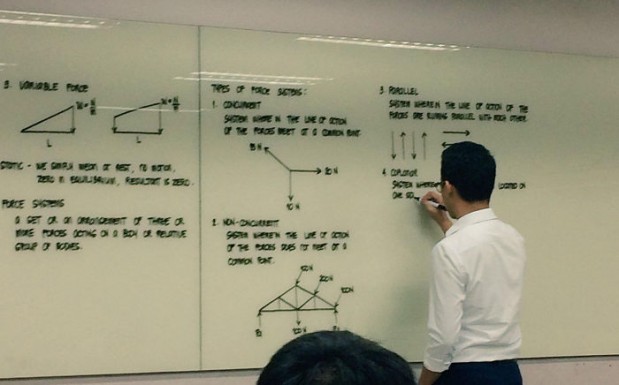 3. VARIABLE FORCE
W = N/m
W = N/m
L
L
STATIC - WE SIMPLY MEAN AT REST, NO MOTION,
ZERO IN EQUILIBRIUM, RESULTANT IS ZERO.
FORCE SYSTEMS
A SET OR AN ARRANGEMENT OF THREE OR
MORE FORCES ACTING ON A BODY OR RELATIVE
GROUP OF BODIES.
TYPES OF FORCE SYSTEMS:
1. CONCURRENT
SYSTEM WHERE IN THE LINE OF ACTION
OF THE FORCES MEET AT A COMMON POINT.
20 N
10 N
2. NON-CONCURRENT
SYSTEM WHEREIN THE LINE OF ACTION
OF THE FORCES DOES NOT MEET AT A
COMMON POINT.
3. PARALLEL
SYSTEM WHEREIN THE LINE OF ACTION OF THE
FORCES ARE RUNNING PARALLEL WITH EACH OTHER.
4. COPLANAR
SYSTEM LOCATED ON
ONE